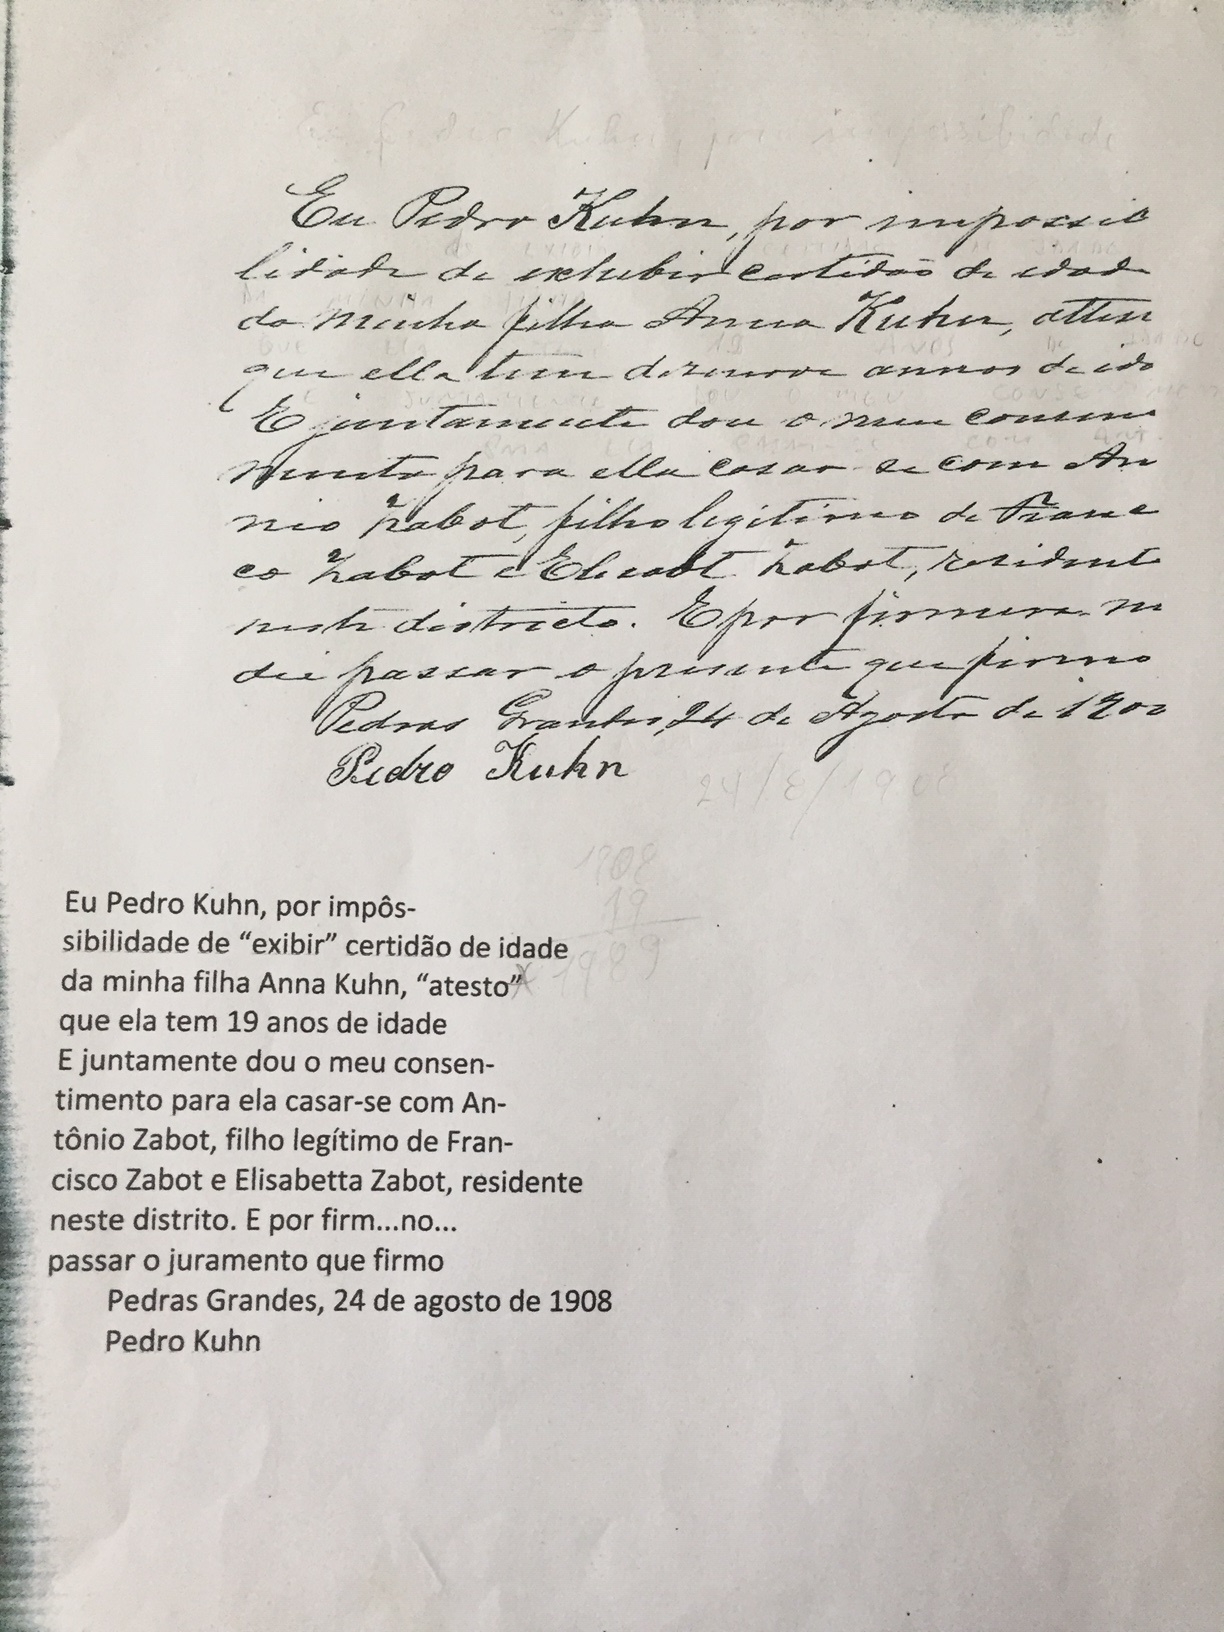 Eu Pedro Kuhn, por impossibilidade
Eu Pedro Kuhn, por impossib
lidade de exhibir certidão de idad
da minha filha Anna Kuhn, attes
que ella tem dezenove annos de ida
E juntamente dou o meu consen
mento para ella casar se com An
nio Zabot, filho legitimo de Franc
co Zabot e Elisabt Zabot, residente
neste districto. E por firmeza m
dei passar o presente que firmo
Pedras Grandes, 24 de Agosto de 190
Pedro Kuhn
24/8/1908
1908
19
1989
Eu Pedro Kuhn, por impôs-
sibilidade de “exibir” certidão de idade
da minha filha Anna Kuhn, “atesto”
que ela tem 19 anos de idade
E juntamente dou o meu consen-
timento para ela casar-se com An-
tônio Zabot, filho legítimo de Fran-
cisco Zabot e Elisabetta Zabot, residente
neste distrito. E por firm...no...
passar o juramento que firmo
Pedras Grandes, 24 de agosto de 1908
Pedro Kuhn